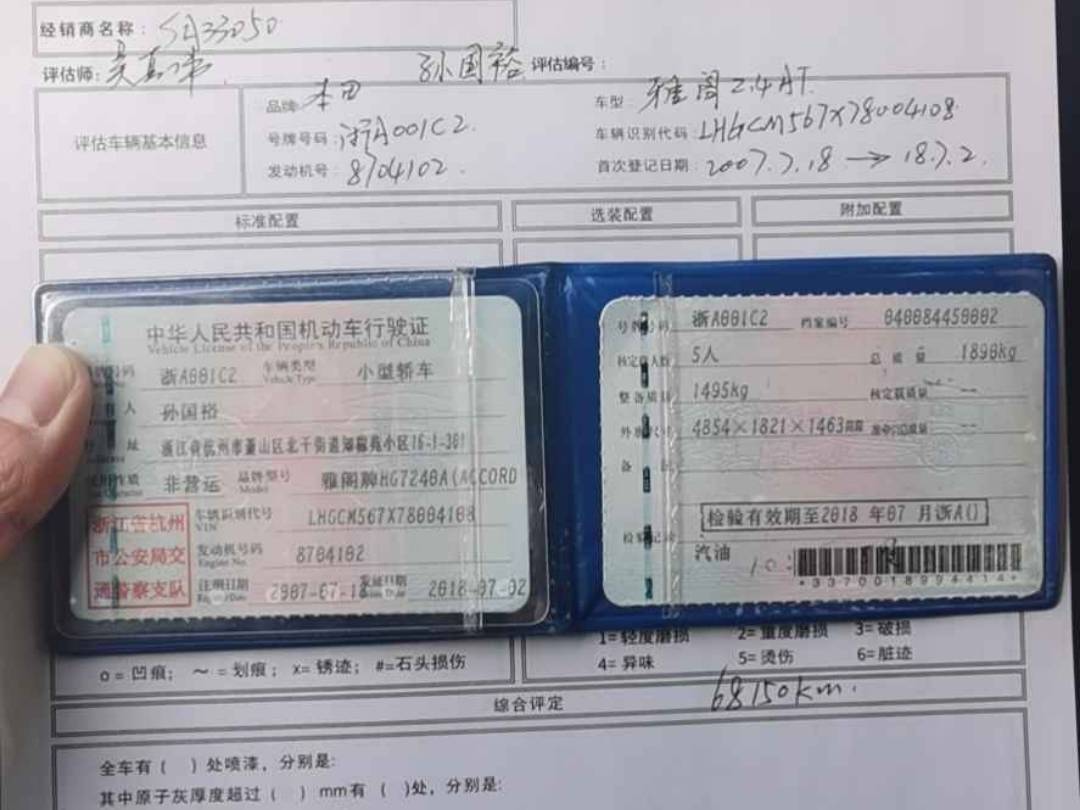 经销商名称：SA33050
评估师： 孙国裕 评估编号：
评估车辆基本信息
品牌 本田 车型：雅阁2.4AT
号牌号码：浙A001C2. 车辆识别代码：LHGCM567X78004108
发动机号：8704102. 首次登记日期：2007.7.18 → 18.7.2.
标准配置 选装配置 附加配置
中华人民共和国机动车行驶证
Vehicle License of the People's Republic of China
号码 浙A001C2 车辆类型 Vehicle Type 小型轿车
人 孙国裕
址 浙江省杭州市萧山区北干街道 苑小区16-1-301
非营运 品牌型号 Model 雅阁牌HG7240A(ACCORD
浙江省杭州市公安局交通警察支队
车辆识别代号 VIN LHGCM567X78004108
发动机号码 Engine No. 8704102
注册日期 2007-07-18 发证日期 2018-07-02
号牌号码 浙A001C2 档案编号 040084450002
核定载人数 5人 总质量 1890kg
整备质量 1495kg 核定载质量 --
外廓尺寸 4854×1821×1463mm --
备
检验有效期至2018 年07 月浙A()
检验记录 汽油
*3370018994414*
o = 凹痕； ～ = 划痕； x= 锈迹； #=石头损伤
1= 轻度磨损 2= 重度磨损 3= 破损
4= 异味 5= 烫伤 6= 脏迹
综合评定 68150km.
全车有（ ）处喷漆，分别是:
其中原子灰厚度超过（ ）mm有（ )处，分别是: